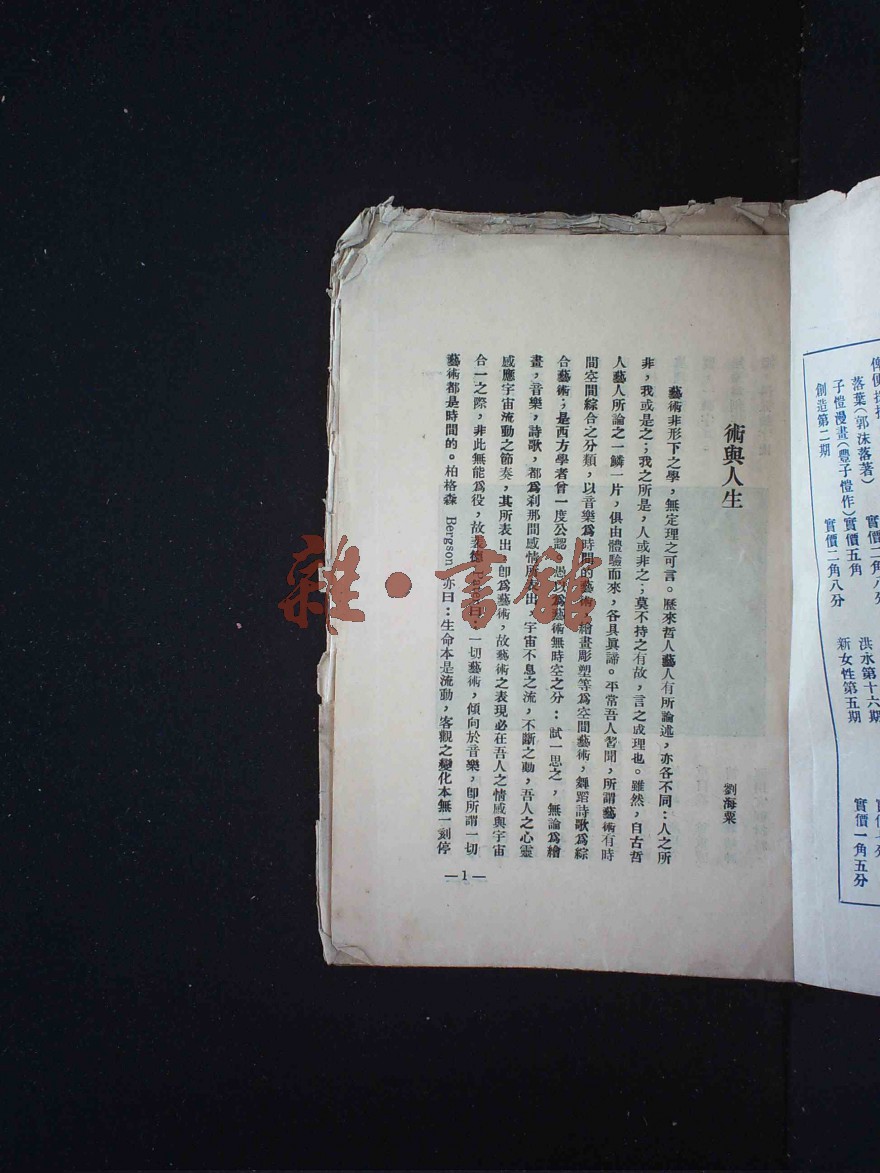 落葉(郭沫落著) 實價五角
子愷漫畫(豐子愷作)
創造第二期 實價二角八分
洪水第十六期
新女性第五期 實價一角五分
術與人生
劉海粟
藝術非形下之學,無定理之可言。歷來哲人藝人有所論述,亦各不同:人之所
非,我或是之;我之所是,人或非之;莫不持之有故,言之成理也。雖然,自古哲
人藝人所論之一鱗一片,俱由體驗而來,各具眞諦。平常吾人習聞,所謂藝術有時
間空間綜合之分類,以音樂爲時間的藝術,繪畫彫塑等爲空間藝術,舞蹈詩歌爲綜
合藝術;是西方學者曾一度公認,愚以爲藝術無時空之分:試一思之,無論爲繪
畫,音樂,詩歌,都爲刹那間感情所表出,宇宙不息之流,不斷之動,吾人之心靈
感應宇宙流動之節奏,其所表出,卽爲藝術,故藝術之表現必在吾人之情感與宇宙
合一之際,非此無能爲役,故 曰:一切藝術,傾向於音樂,卽所謂一切
藝術都是時間的。柏格森 Bergson 亦曰:生命本是流動,客觀之變化本無一刻停
—1—
雜·書館